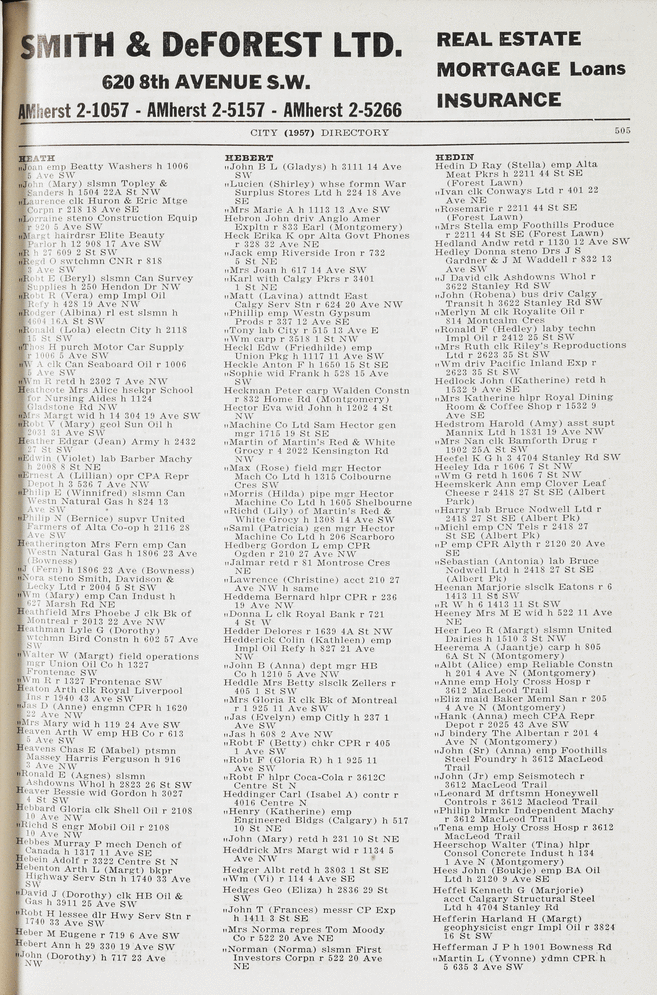 SMITH & DeFOREST LTD.
620 8th AVENUE S.W.
AMherst 2-1057 - AMherst 2-5157 - AMherst 2-5266
REAL ESTATE
MORTGAGE Loans
INSURANCE
CITY (1957) DIRECTORY 505
HEATH
"Joan emp Beatty Washers h 1006
5 Ave SW
"John (Mary) slsmn Topley &
Sanders h 1504 22A St NW
"Laurence clk Huron & Eric Mtge
Corpn r 218 18 Ave SE
"Lorraine steno Construction Equip
r 920 5 Ave SW
"Margt hairdrsr Elite Beauty
Parlor h 12 908 17 Ave SW
"R h 27 609 2 St SW
"Regd O swtchmn CNR r 818
3 Ave SW
"Robt E (Beryl) slsmn Can Survey
Supplies h 250 Hendon Dr NW
"Robt R (Vera) emp Impl Oil
Refy h 428 19 Ave NW
"Rodger (Albina) rl est slsmn h
4604 16A St SW
"Ronald (Lola) electn City h 2118
15 St SW
"Thos H purch Motor Car Supply
r 1006 5 Ave SW
"W A clk Can Seaboard Oil r 1006
5 Ave SW
"Wm R retd h 2302 7 Ave NW
Heathcote Mrs Alice hsekpr School
for Nursing Aides h 1124
Gladstone Rd NW
"Mrs Margt wid h 14 304 19 Ave SW
"Robt V (Mary) geol Sun Oil h
2031 31 Ave SW
Heather Edgar (Jean) Army h 2432
27 St SW
"Edwin (Violet) lab Barber Machy
h 2008 8 St NE
"Ernest A (Lillian) opr CPA Repr
Depot h 3 536 7 Ave NW
"Philip E (Winnifred) slsmn Can
Westn Natural Gas h 824 13
Ave SW
"Philip N (Bernice) supvr United
Farmers of Alta Co-op h 2116 28
Ave SW
Heatherington Mrs Fern emp Can
Westn Natural Gas h 1806 23 Ave
(Bowness)
"J (Fern) h 1806 23 Ave (Bowness)
"Nora steno Smith, Davidson &
Lecky Ltd r 2004 5 St SW
"Wm (Mary) emp Can Indust h
627 Marsh Rd NE
Heathfield Mrs Phoebe J clk Bk of
Montreal r 2013 22 Ave NW
Heathman Lyle G (Dorothy)
wtchmn Bird Constn h 602 57 Ave
SW
"Walter W (Margt) field operations
mgr Union Oil Co h 1327
Frontenac SW
"Wm R r 1327 Frontenac SW
Heaton Arth clk Royal Liverpool
Ins r 1940 43 Ave SW
"Jas D (Anne) engmn CPR h 1620
22 Ave NW
"Mrs Mary wid h 119 24 Ave SW
Heaven Arth W emp HB Co r 613
5 Ave SW
Heavens Chas E (Mabel) ptsmn
Massey Harris Ferguson h 916
3 Ave NW
"Ronald E (Agnes) slsmn
Ashdowns Whol h 2823 26 St SW
Heaver Bessie wid Gordon h 3027
4 St SW
Hebbard Gloria clk Shell Oil r 2108
10 Ave NW
"Richd S engr Mobil Oil r 2108
10 Ave NW
Hebbes Murray P mech Dench of
Canada h 1317 11 Ave SE
Hebein Adolf r 3322 Centre St N
Hebenton Arth L (Margt) bkpr
Highway Serv Stn h 1740 33 Ave
SW
"David J (Dorothy) clk HB Oil &
Gas h 3911 25 Ave SW
"Robt H lessee dlr Hwy Serv Stn r
1740 33 Ave SW
Heber M Eugene r 719 6 Ave SW
Hebert Ann h 29 330 19 Ave SW
"John (Dorothy) h 717 23 Ave
NW
HEBERT
"John B L (Gladys) h 3111 14 Ave
SW
"Lucien (Shirley) whse formn War
Surplus Stores Ltd h 224 18 Ave
SE
"Mrs Marie A h 1113 13 Ave SW
Hebron John driv Anglo Amer
Expltn r 833 Earl (Montgomery)
Heck Erika K opr Alta Govt Phones
r 328 32 Ave NE
"Jack emp Riverside Iron r 732
5 St NE
"Mrs Joan h 617 14 Ave SW
"Karl with Calgy Pkrs r 3401
1 St NE
"Matt (Lavina) attndt East
Calgy Serv Stn r 624 20 Ave NW
"Phillip emp Westn Gypsum
Prods r 337 12 Ave SE
"Tony lab City r 515 13 Ave E
"Wm carp r 3518 1 St NW
Heckl Edw (Friedhilde) emp
Union Pkg h 1117 11 Ave SW
Heckle Anton F h 1650 15 St SE
"Sophie wid Frank h 528 15 Ave
SW
Heckman Peter carp Walden Constn
r 832 Home Rd (Montgomery)
Hector Eva wid John h 1202 4 St
NW
"Machine Co Ltd Sam Hector gen
mgr 1715 19 St SE
"Martin of Martin's Red & White
Grocy r 4 2022 Kensington Rd
NW
"Max (Rose) field mgr Hector
Mach Co Ltd h 1315 Colbourne
Cres SW
"Morris (Hilda) pipe mgr Hector
Machine Co Ltd h 1605 Shelbourne
"Richd (Lily) of Martin's Red &
White Grocy h 1308 14 Ave SW
"Saml (Patricia) gen mgr Hector
Machine Co Ltd h 206 Scarboro
Hedberg Gordon L emp CPR
Ogden r 210 27 Ave NW
"Jalmar retd r 81 Montrose Cres
NE
"Lawrence (Christine) acct 210 27
Ave NW h same
Heddema Bernard hlpr CPR r 236
19 Ave NW
"Donna L clk Royal Bank r 721
4 St W
Hedder Delores r 1639 4A St NW
Hedderick Colin (Kathleen) emp
Impl Oil Refy h 827 21 Ave
NW
"John B (Anna) dept mgr HB
Co h 1210 5 Ave NW
Heddle Mrs Betty slsclk Zellers r
405 1 St SW
"Mrs Gloria R clk Bk of Montreal
r 1 925 11 Ave SW
"Jas (Evelyn) emp Citly h 237 1
Ave SW
"Jas h 608 2 Ave NW
"Robt F (Betty) chkr CPR r 405
1 Ave SW
"Robt F (Gloria R) h 1 925 11
Ave SW
"Robt F hlpr Coca-Cola r 3612C
Centre St N
Heddinger Carl (Isabel A) contr r
4016 Centre N
"Henry (Katherine) emp
Engineered Bldgs (Calgary) h 517
10 St NE
"John (Mary) retd h 231 10 St NE
Heddrick Mrs Margt wid r 1134 5
Ave NW
Hedger Albt retd h 3803 1 St SE
"Wm (Vi) r 114 4 Ave SE
Hedges Geo (Eliza) h 2836 29 St
SW
"John T (Frances) messr CP Exp
h 1411 3 St SE
"Mrs Norma repres Tom Moody
Co r 522 20 Ave NE
"Norman (Norma) slsmn First
Investors Corpn r 522 20 Ave
NE
HEDIN
Hedin D Ray (Stella) emp Alta
Meat Pkrs h 2211 44 St SE
(Forest Lawn)
"Ivan clk Conways Ltd r 401 22
Ave NE
"Rosemarie r 2211 44 St SE
(Forest Lawn)
"Mrs Stella emp Foothills Produce
r 2211 44 St SE (Forest Lawn)
Hedland Andw retd r 1130 12 Ave SW
Hedley Donna steno Drs J S
Gardner & J M Waddell r 832 13
Ave SW
"J David clk Ashdowns Whol r
3622 Stanley Rd SW
"John (Robena) bus driv Calgy
Transit h 3622 Stanley Rd SW
"Merlyn M clk Royalite Oil r
814 Montcalm Cres
"Ronald F (Hedley) laby techn
Impl Oil r 2412 25 St SW
"Mrs Ruth clk Riley's Reproductions
Ltd r 2623 35 St SW
"Wm driv Pacific Inland Exp r
2623 35 St SW
Hedlock John (Katherine) retd h
1532 9 Ave SE
"Mrs Katherine hlpr Royal Dining
Room & Coffee Shop r 1532 9
Ave SE
Hedstrom Harold (Amy) asst supt
Mannix Ltd h 1831 19 Ave NW
"Mrs Nan clk Bamforth Drug r
1902 25A St SW
Heefel K G h 3 4704 Stanley Rd SW
Heeley Ida r 1606 7 St NW
"Wm G retd h 1606 7 St NW
Heemskerk Ann emp Clover Leaf
Cheese r 2418 27 St SE (Albert
Park)
"Harry lab Bruce Nodwell Ltd r
2418 27 St SE (Albert Pk)
"Michl emp CN Tels r 2418 27
St SE (Albert Pk)
"P emp CPR Alyth r 2120 20 Ave
SE
"Sebastian (Antonia) lab Bruce
Nodwell Ltd r 2418 27 St SE
(Albert Pk)
Heenan Marjorie slsclk Eatons r 6
1413 11 St SW
"R W h 6 1413 11 St SW
Heeney Mrs M E wid h 522 11 Ave
NE
Heer Leo R (Margt) slsmn United
Dairies h 1510 3 St NW
Heerema A (Jaantje) carp h 805
6A St N (Montgomery)
"Albt (Alice) emp Reliable Constn
h 201 4 Ave N (Montgomery)
"Anne emp Holy Cross Hosp r
3612 MacLeod Trail
"Eliz maid Baker Meml San r 205
4 Ave N (Montgomery)
"Hank (Anna) mech CPA Repr
Depot r 2025 43 Ave SW
"J bindery The Albertan r 201 4
Ave N (Montgomery)
"John (Sr) (Anna) emp Foothills
Steel Foundry h 3612 MacLeod
Trail
"John (Jr) emp Seismotech r
3612 MacLeod Trail
"Leonard M drftsmn Honeywell
Controls r 3612 Macleod Trail
"Philip blrmkr Independent Machy
r 3612 MacLeod Trail
"Tena emp Holy Cross Hosp r 3612
MacLeod Trail
Heerschop Walter (Tina) hlpr
Consol Concrete Indust h 134
1 Ave N (Montgomery)
Hees John (Boukje) emp BA Oil
Ltd h 2120 9 Ave SE
Heffel Kenneth G (Marjorie)
acct Calgary Structural Steel
Ltd h 4704 Stanley Rd
Hefferin Harland H (Margt)
geophysicist engr Impl Oil r 3824
16 St SW
Hefferman J P h 1901 Bowness Rd
"Martin L (Yvonne) ydmn CPR h
5 635 3 Ave SW